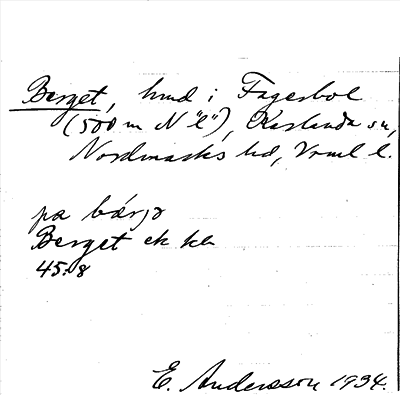 Berget, hmd i Fagerbol
(500 m N "l"), Karlanda sn,
Nordmarks hd, Vrml l.
pa bærjə
Berget ek kbl
45:8
E. Andersson 1934.